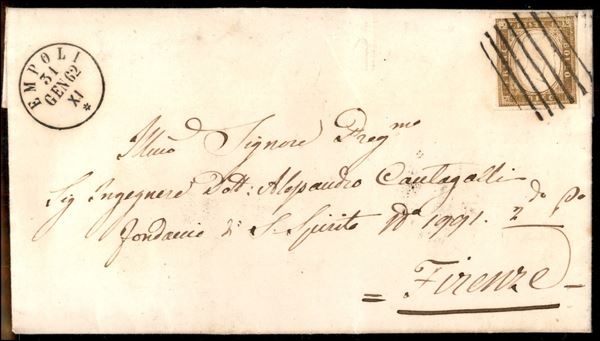 EMPOLI
31
GEN 62
XI
Illmo Signore Pregmo
Sig Ingegnere Dott: Alessandro Cantagalli
fondaccio di S. Spirito No 1991. 2do Po
= Firenze =